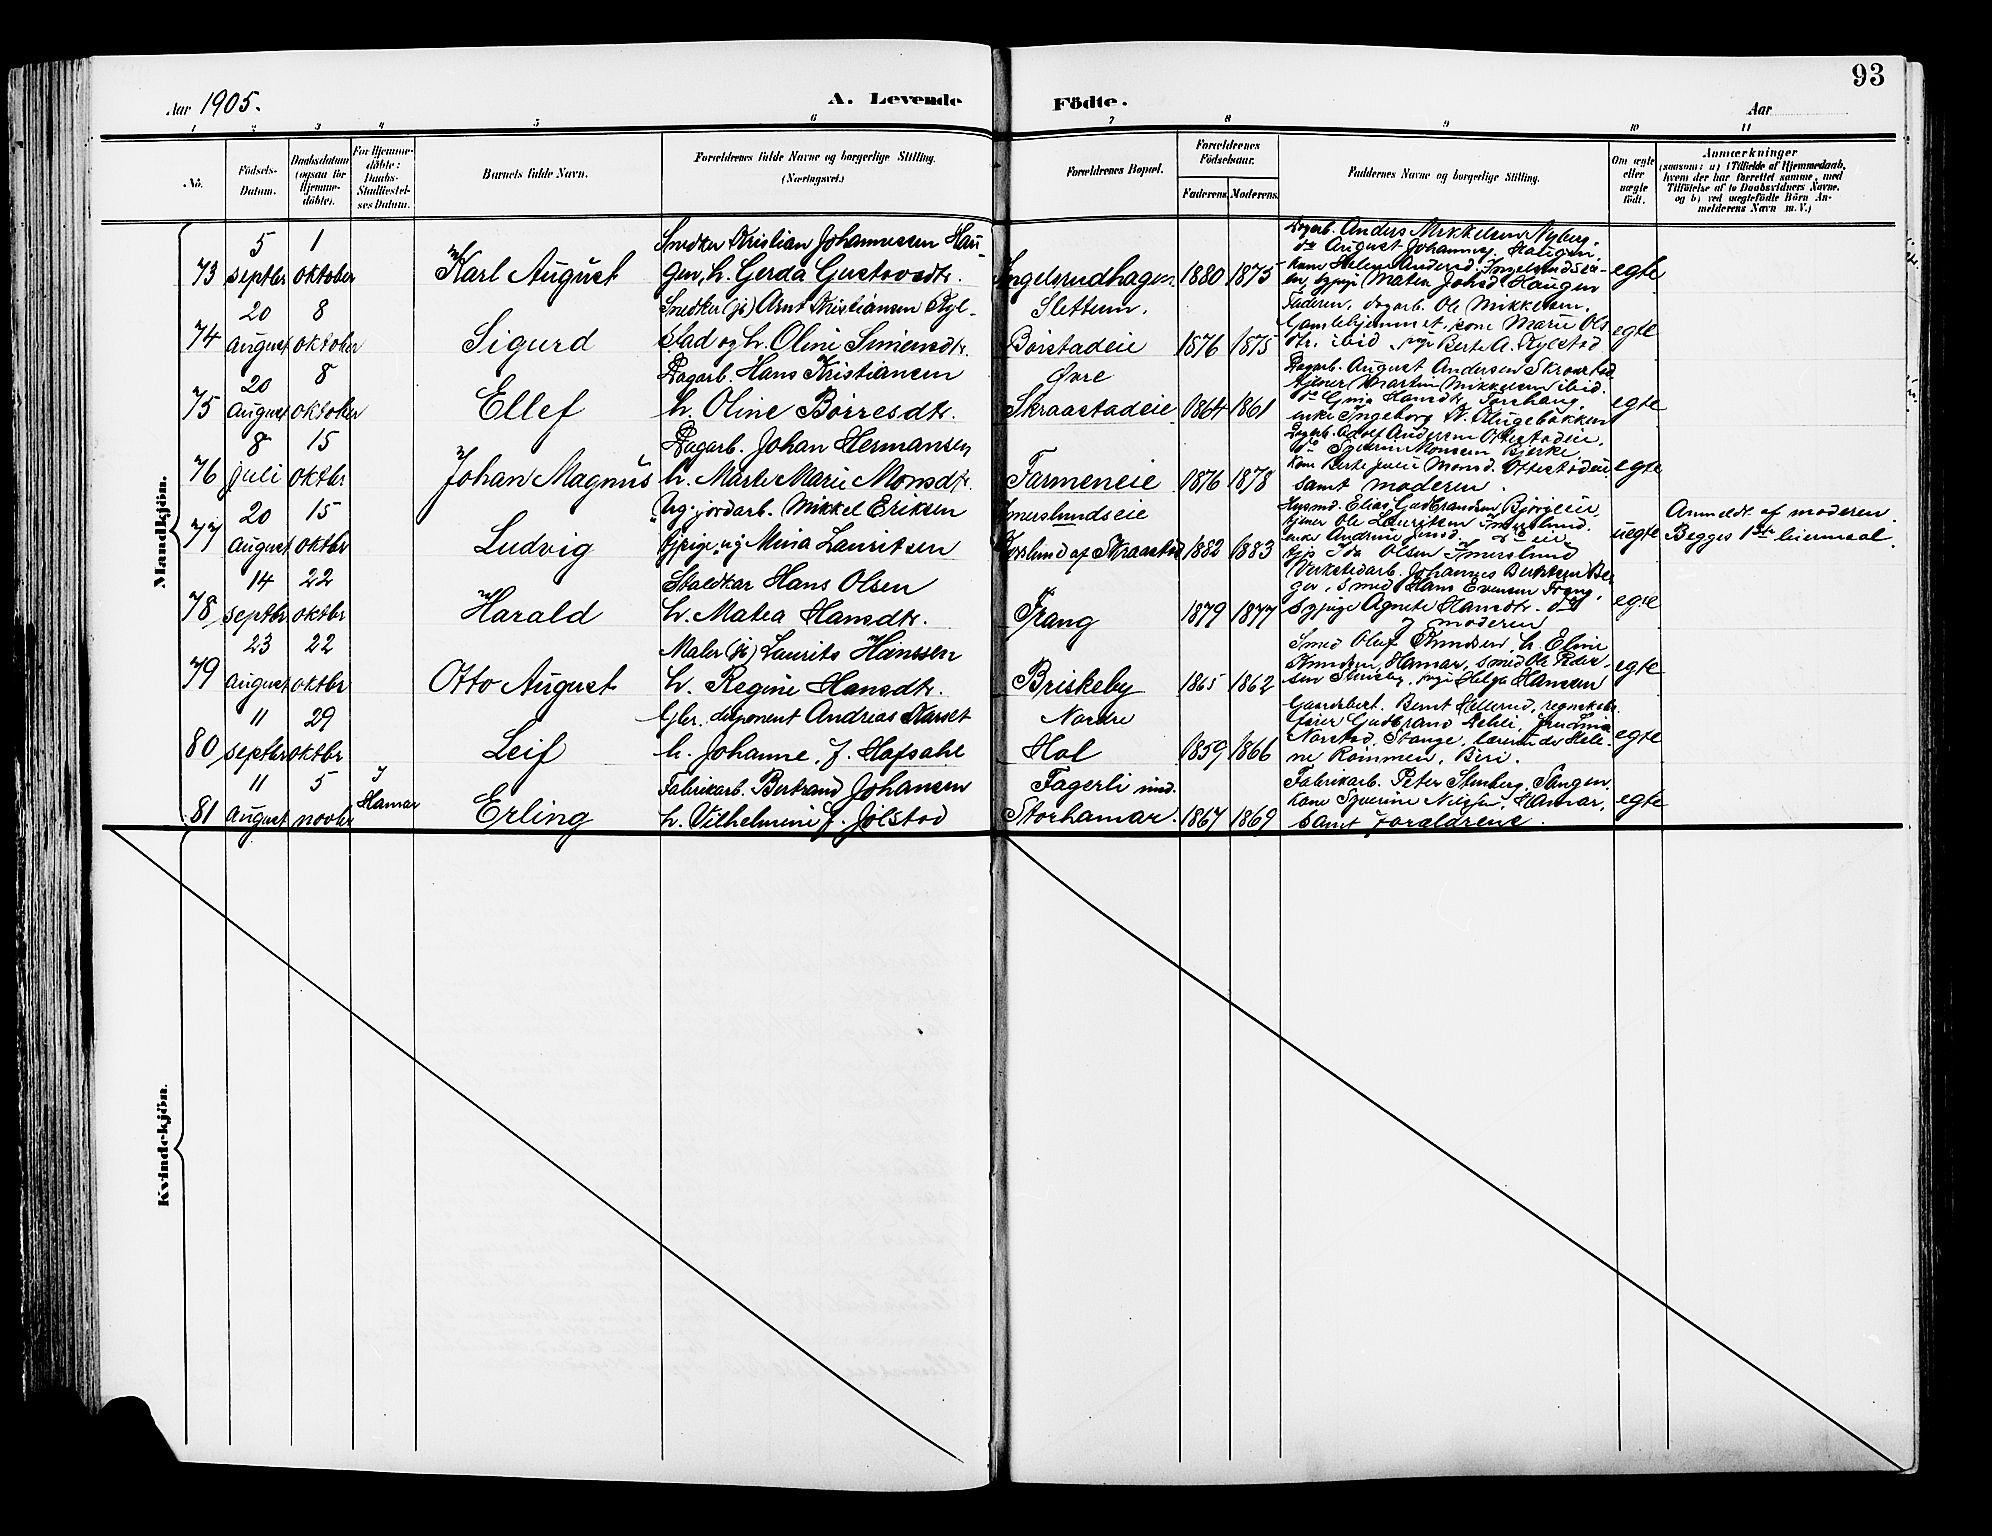 93
Aar 1905.
A. Levende Födte.
Aar
1 2 3 4 5 6 7 8 9 10 11
No.
Födsels-Datum.
Daabsdatum (ogsaa for Hjemmedöbte).
For Hjemmedöbte: Daabs-Stadfæstelses Datum.
Barnets fulde Navn.
Forældrenes fulde Navne og borgerlige Stilling. (Næringsvei.)
Forældrenes Bopæl.
Forældrenes Födselsaar.
Faderens. Moderens.
Faddernes Navne og borgerlige Stilling.
Om ægte eller uægte födt.
Anmærkninger
(saasom: a) i Tilfælde af Hjemmedaab,
hvem der har forrettet samme, med
Tilföielse af to Daabsvidners Navne,
og b) ved uægtefödte Börn An-
melderens Navn m. V.)
Mandkjön.
73 5 septbr 1 oktober Karl August
Snedker Kristian Johannessen Hau-
gen, h. Gerda Gustavsdtr.
Ingelsrudhagen 1880 1875
Dagarb. Anders Mikkelsen Nyberg,
do August Johannes. Haugen,
kone Helene Andersd. Ingelsrudseie
Matea Johsd Haugen
egte
74 20 august 8 oktober Sigurd
Snedker (js) Arnt Kristiansen Kyl-
stad og h. Oline Simensdtr.
Slettum. Börstadeie 1876 1875
Faderen, dagarb. Ole Mikkelsen,
Gamlehjemmet, kone Marie Ols
dtr. ibid, pige Berte A. Kylstad
egte
75 20 august 8 oktober Ellef
Dagarb. Hans Kristiansen
h. Oline Börresdtr.
Övre Skraastadeie 1864 1861
Dagarb. August Andersen Skraastad
tjener Martin Mikkelsen ibid.
enke Ingeborg
egte
76 8 juli 15 oktbr Johan Magnus
Dagarb. Johan Hermansen
h. Marte Marie Monsdtr.
Farmeneie 1876 1878
Dagarb. Adolf Andersen Ottestadeie,
do Severin Monsen Bjerke,
kone Berte Julie Monsd. Ottestadeie
samt moderen.
egte
77 20 august 15 oktbr Ludvig
Ug. jordarb. Mikkel Eriksen
tjpige, ug Mina Lauritsen
Imerslundseie
af Skraastad 1882 1883
Husmd. Elias Gudbrandsen Björgeeie,
tjener Ole Lauritsen Imerslund.
enke Andrine
tjp Ida Olsen Imerslund
uegte
Anmeldt af moderen.
Begges 1ste leiermaal.
78 14 septbr 22 oktbr Harald
Staldkar Hans Olsen
h. Matea Hansdtr.
Frang 1879 1877
Verkstedarb. Johannes Berntsen Ber
ger, Smed Hans Evensen Frang,
sypige Agnete Hansdtr. do
og moderen
egte
79 23 august 22 oktbr Otto August
Maler (js) Laurits Hanssen
h. Regine Hansdtr.
Briskeby 1865 1862
Smed Oluf Knudsen, h. Eline
Knudsen, Hamar, smed Ole Peder-
sen, pige Helga Hansen
egte
80 11 septbr 29 oktbr Leif
Gbr. disponent Andreas Narset
h. Johanne, f. Hafsahl
Nordre Hol 1859 1866
Gaardbert. Bernt Hellerud, regnskabs
förer Gudbrand Fru Lina
Norstad, Stange, lærerinde Heli-
ne Römmen, Biri.
egte
81 11 august 5 novbr I Hamar Erling
Fabrikarb. Bertrand Johansen
h. Vilhelmine f. Jölstad
Fagerli
Storhamar. 1867 1869
Fabrikarb. Peter Stenberg, Sangen,
kone Severine Nilsen, Hamar,
samt forældrene.
egte
Kvindekjön.